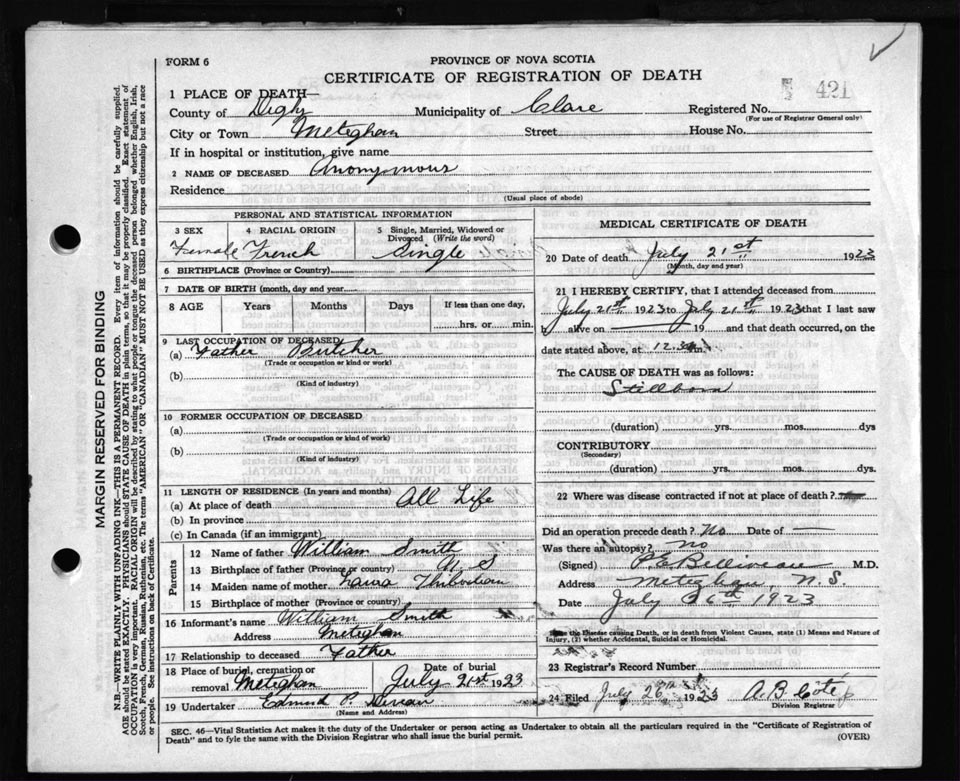 FORM 6
PROVINCE OF NOVA SCOTIA
CERTIFICATE OF REGISTRATION OF DEATH
1 PLACE OF DEATH—
County of Digby Municipality of Clare Registered No. 421
(For use of Registrar General only)
City or Town Meteghan Street House No.
If in hospital or institution, give name
2 NAME OF DECEASED Anonymous
Residence
(Usual place of abode)
PERSONAL AND STATISTICAL INFORMATION
3 SEX 4 RACIAL ORIGIN 5 Single, Married, Widowed or Divorced (Write the word)
Female French Single
6 BIRTHPLACE (Province or Country)
7 DATE OF BIRTH (month, day and year)
8 AGE Years Months Days If less than one day,
hrs. or min.
9 LAST OCCUPATION OF DECEASED
(a) Father Butcher
(Trade or occupation or kind or work)
(b)
(Kind of industry)
10 FORMER OCCUPATION OF DECEASED
(a)
(Trade or occupation or kind of work)
(b)
(Kind of industry)
11 LENGTH OF RESIDENCE (In years and months)
(a) At place of death All Life
(b) In province
(c) In Canada (if an immigrant)
Parents
12 Name of father William Smith
13 Birthplace of father (Province or country) N S
14 Maiden name of mother Thibodeau
15 Birthplace of mother (Province or country)
16 Informant's name William Smith
Address Meteghan
17 Relationship to deceased Father
18 Place of burial, cremation or removal Meteghan Date of burial July 21st 1923
19 Undertaker Edmund P.
(Name and Address)
MEDICAL CERTIFICATE OF DEATH
20 Date of death July 21st 1923
(Month, day and year)
21 I HEREBY CERTIFY, that I attended deceased from
July 21st 1923 to July 21st 1923 that I last saw
h alive on 19 and that death occurred, on
date stated above, at 12.30 m.
The CAUSE OF DEATH was as follows:
Stillborn
(duration) yrs. mos. dys
CONTRIBUTORY
(Secondary)
(duration) yrs. mos. dys.
22 Where was disease contracted if not at place of death?
Did an operation precede death? No Date of
Was there an autopsy? no
(Signed) P.E. Belliveau M.D.
Address Meteghan, N.S.
Date July 26th 1923
the Disease causing Death, or in death from Violent Causes, state (1) Means and Nature of
Injury, (2) whether Accidental, Suicidal or Homicidal.
23 Registrar's Record Number
24 Filed July 26th 1923 A.B.
Division Registrar
SEC. 46—Vital Statistics Act makes it the duty of the Undertaker or person acting as Undertaker to obtain all the particulars required in the "Certificate of Registration of
Death" and to fyle the same with the Division Registrar who shall issue the burial permit. (OVER)
MARGIN RESERVED FOR BINDING
N.B.—WRITE PLAINLY WITH UNFADING INK—THIS IS A PERMANENT RECORD. Every item of information should be carefully supplied.
AGE should be stated EXACTLY. PHYSICIANS should STATE CAUSE OF DEATH in plain terms, so that it may be properly classified. Exact statement of
OCCUPATION is very important. RACIAL ORIGIN will be described by stating to what people or tongue the deceased person belonged whether English, Irish,
Scotch, French, German, Russian, Ruthenian, etc. The terms "AMERICAN" OR "CANADIAN" MUST NOT BE USED as they express citizenship but not a race
or people. See instructions on back of Certificate.